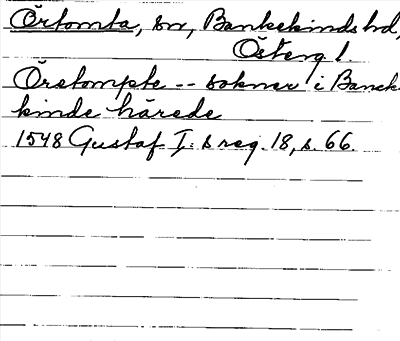 Örtomta, sn, Bankekinds hd,
Österg l.
Örstompte -- sokner i Banek
kinde härede
1548 Gustaf I:s reg. 18, s. 66.